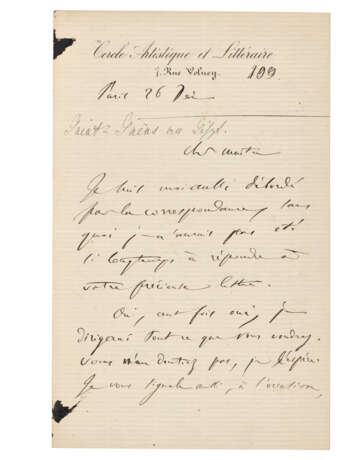 Cercle Artistique et Littéraire
7. Rue Volney. 199
Paris 26 Déc
Saint-Saëns
Cher maître
Je suis débordé
par la correspondance, sans
quoi je n'aurais pas été
si longtemps à répondre à
votre précieuse lettre.
Oui, cent fois oui, je
dirigerai tout ce que vous voudrez.
Vous n'en doutez pas, je l'espère.
Je vous signale à l'occasion,